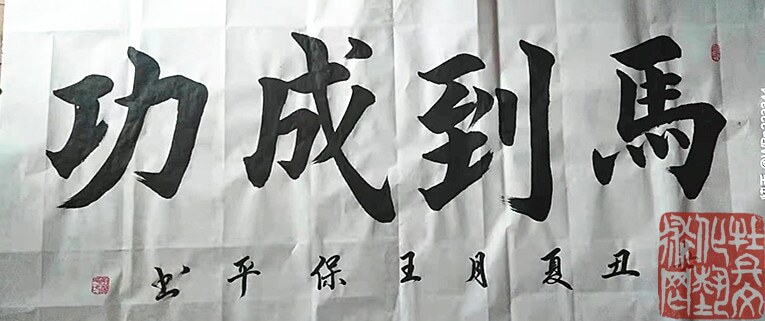 馬到成功
丑夏月王保平书